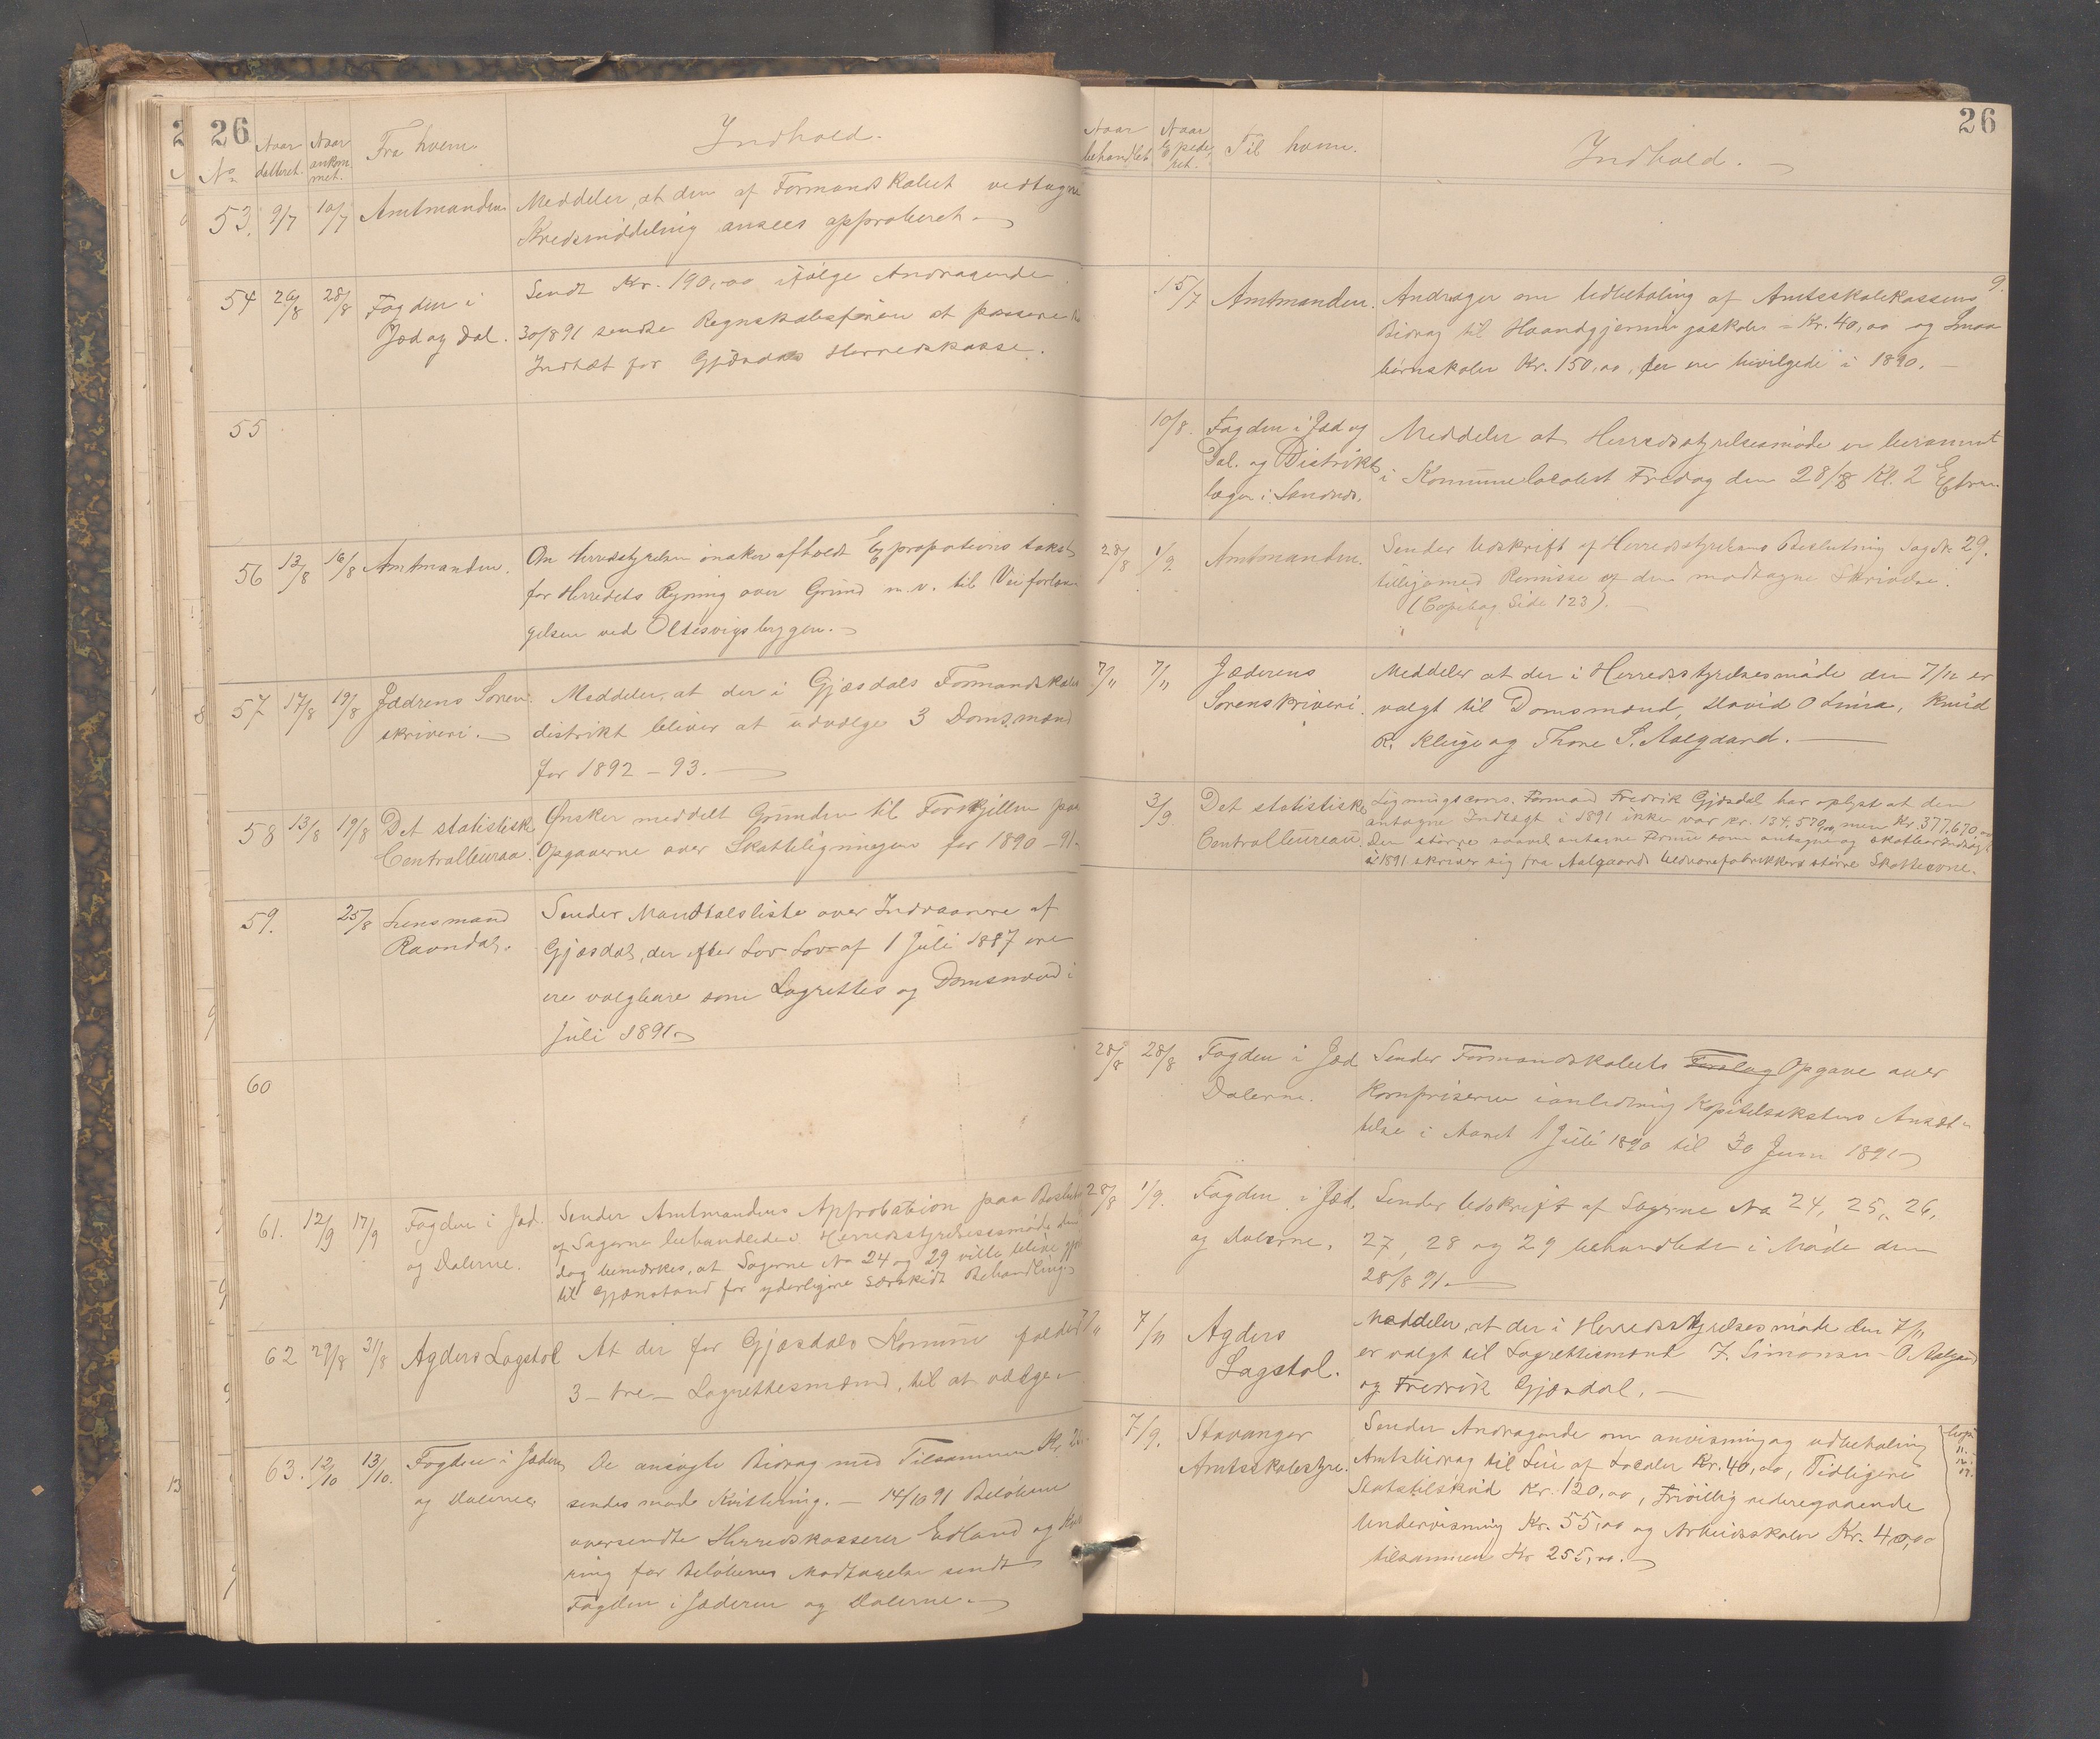 26
No
Naar datteret.
Naar ankommet.
Fra hvem.
Indhold.
53. 9/7 10/7 Amtmanden
Meddeler, at den af Formandskabet vedtagne
Kredsinddeling ansees approberet.
54 26/8 28/8 Fogden i
Jæd og Dal.
Sendt Kr. 190,00 ifølge Andragende
30/8 91 sendte Regnskabsføreren at passere
Indtæt for Gjæsdals Herredskasse.
55
56 13/8 16/8 Amtmanden.
Om Herredsstyrelsen ønsker afholdt Expropriations takst
for Herredets Regning over Grund m.v. til Vei forlæn
gelsen ved Oltesvigsbryggen.
57 17/8 19/8 Jædrens Soren
skriveri.
Meddeler, at der i Gjæsdals Formandskabs
distrikt bliver at udvælge 3 Domsmænd
for 1892 – 93.
58 13/8 19/8 Det statistiske
Centralbureau.
Ønsker meddelt Grunden til Forskjellen paa
Opgaverne over Skatteligningen for 1890 – 91.
59. 25/8 Lensmand
Ravndal.
Sender Mandtalsliste over Indvaanere af
Gjæsdal, der efter Lov Lov af 1 Juli 1887 ere
ere valgbare som Lagrettes og Domsmænd i
Juli 1891.
60
61. 12/9 17/9 Fogden i Jæd.
og Dalerne.
Sender Amtmandens Approbation paa Beslut
af Sagerne behandlede i Herredsstyrelsesmøde den
dog bemærkes, at Sagerne No 24 og 29 ville blive gjo
til Gjænstand for yderligere særskildt Behandling
62 29/8 31/8 Agders Lagstol
At der for Gjæsdals Komune falder
3 – tre – Lagrettesmænd, til at vælge.
63. 12/10 13/10. Fogden i Jæderen
og Dalerne
De ansøgte Bidrag med Tilsammen Kr.
sendes mod Kvittering. – 14/10 91 Beløbene
oversendte Herredskasserer Edland og
ring for Beløbenes Modtagelse sendt
Fogden i Jæderen og Dalerne.
26
Naar behandlet.
Naar Expederet.
Til hvem.
Indhold.
15/7 Amtmanden.
Andrager om Udbetaling af Amtsskolekassens 9.
Bidrag til Haandgjerningsskoler = Kr. 40,00 og Smaa
børnskoler Kr. 150,00, der ere bevilgede i 1890.
10/8. Fogden i Jæd og
Dal. og Distrikts
læger i Sandnes.
Meddeler at Herredsstyrelsesmøde er berammet
i Kommunelocalet Fredag den 28/8 Kl. 2 Efterm.
28/8 1/9. Amtmanden.
Sender Udskrift af Herredsstyrelsens Beslutning Sag No 29.
tilligemed Remisse af den modtagne Skrivelse.
(Copibog Side 123).
7/11 7/11 Jæderens
Sorenskriveri.
Meddeler at der i Herredsstyrelsesmøde den 7/11 er
valgt til Domsmænd, David O Lima, Knud
R. Kluge og Thore S. Aalgaard.
3/9. Det statistiske
Centralbureau.
Ligningscom. Formand Fredrik Gjæsdal har oplyst at den
antagne Indtægt i 1891 ikke var Kr. 134.570,00 men Kr. 377.670,00
Den større saavel antagne Formue som antagne og skatbar Indtægt
i 1891 skriver sig fra Aalgaards Uldvarefabrikkers større Skatteevne.
28/8 28/8 Fogden i Jæd
Dalerne.
Sender Formandskabets Forslag Opgave over
Kornpriserne i anledning Kapitelstakstens Ansæt=
telse i Aaret 1 Juli 1890 til 30 Juni 1891
28/8 1/9. Fogden i Jæd.
og Dalerne.
Sender Udskrift af Sagerne No 24, 25, 26,
27, 28 og 29 behandlede i Møde den
28/8 91.
7/11 7/11 Agders
Lagstol.
Meddeler, at der i Herredsstyrelsesmøde den 7/11
er valgt til Lagrettesmænd F. Simonsen – O. Aalgaard
og Fredrik Gjæsdal.
7/9. Stavanger
Amtsskolestyre.
Sender Andragende om anvisning og udbetaling
Amtsbidrag til Leie af Localer Kr. 40,00, Tidligere
Statstilskud Kr. 120,00, Frivillig nederegaaende
Undervisning Kr. 55,00 og Arbeidsskoler Kr. 40,00
tilsammen Kr 255,00.